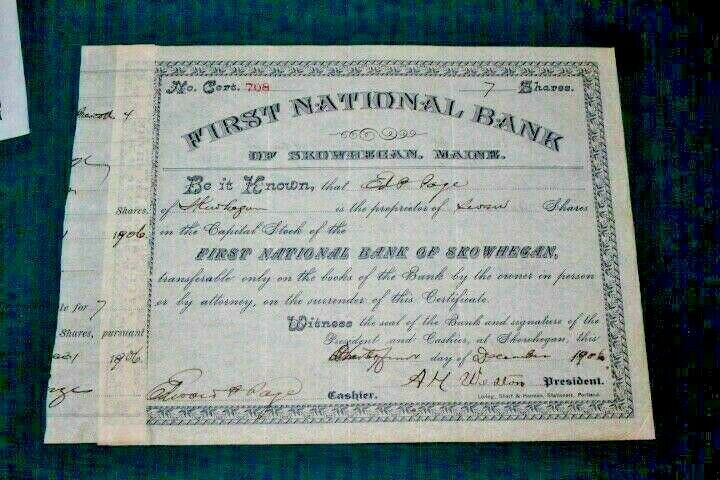 No. Cert. 708 7 Shares.
FIRST NATIONAL BANK
OF SKOWHEGAN, MAINE.
Be it Known, that Ed P Page
of Skowhegan is the proprietor of Seven Shares
in the Capital Stock of the
FIRST NATIONAL BANK OF SKOWHEGAN,
transferable only on the books of the Bank by the owner in person
or by attorney, on the surrender of this Certificate.
Witness the seal of the Bank and signatures of the
President and Cashier, at Skowhegan, this
day of December 1906
A H Weston President.
Edward P Page Cashier.
Loring, Short & Harmon, Stationers, Portland.
4
Shares,
1906
for 7
Shares, pursuant
1906